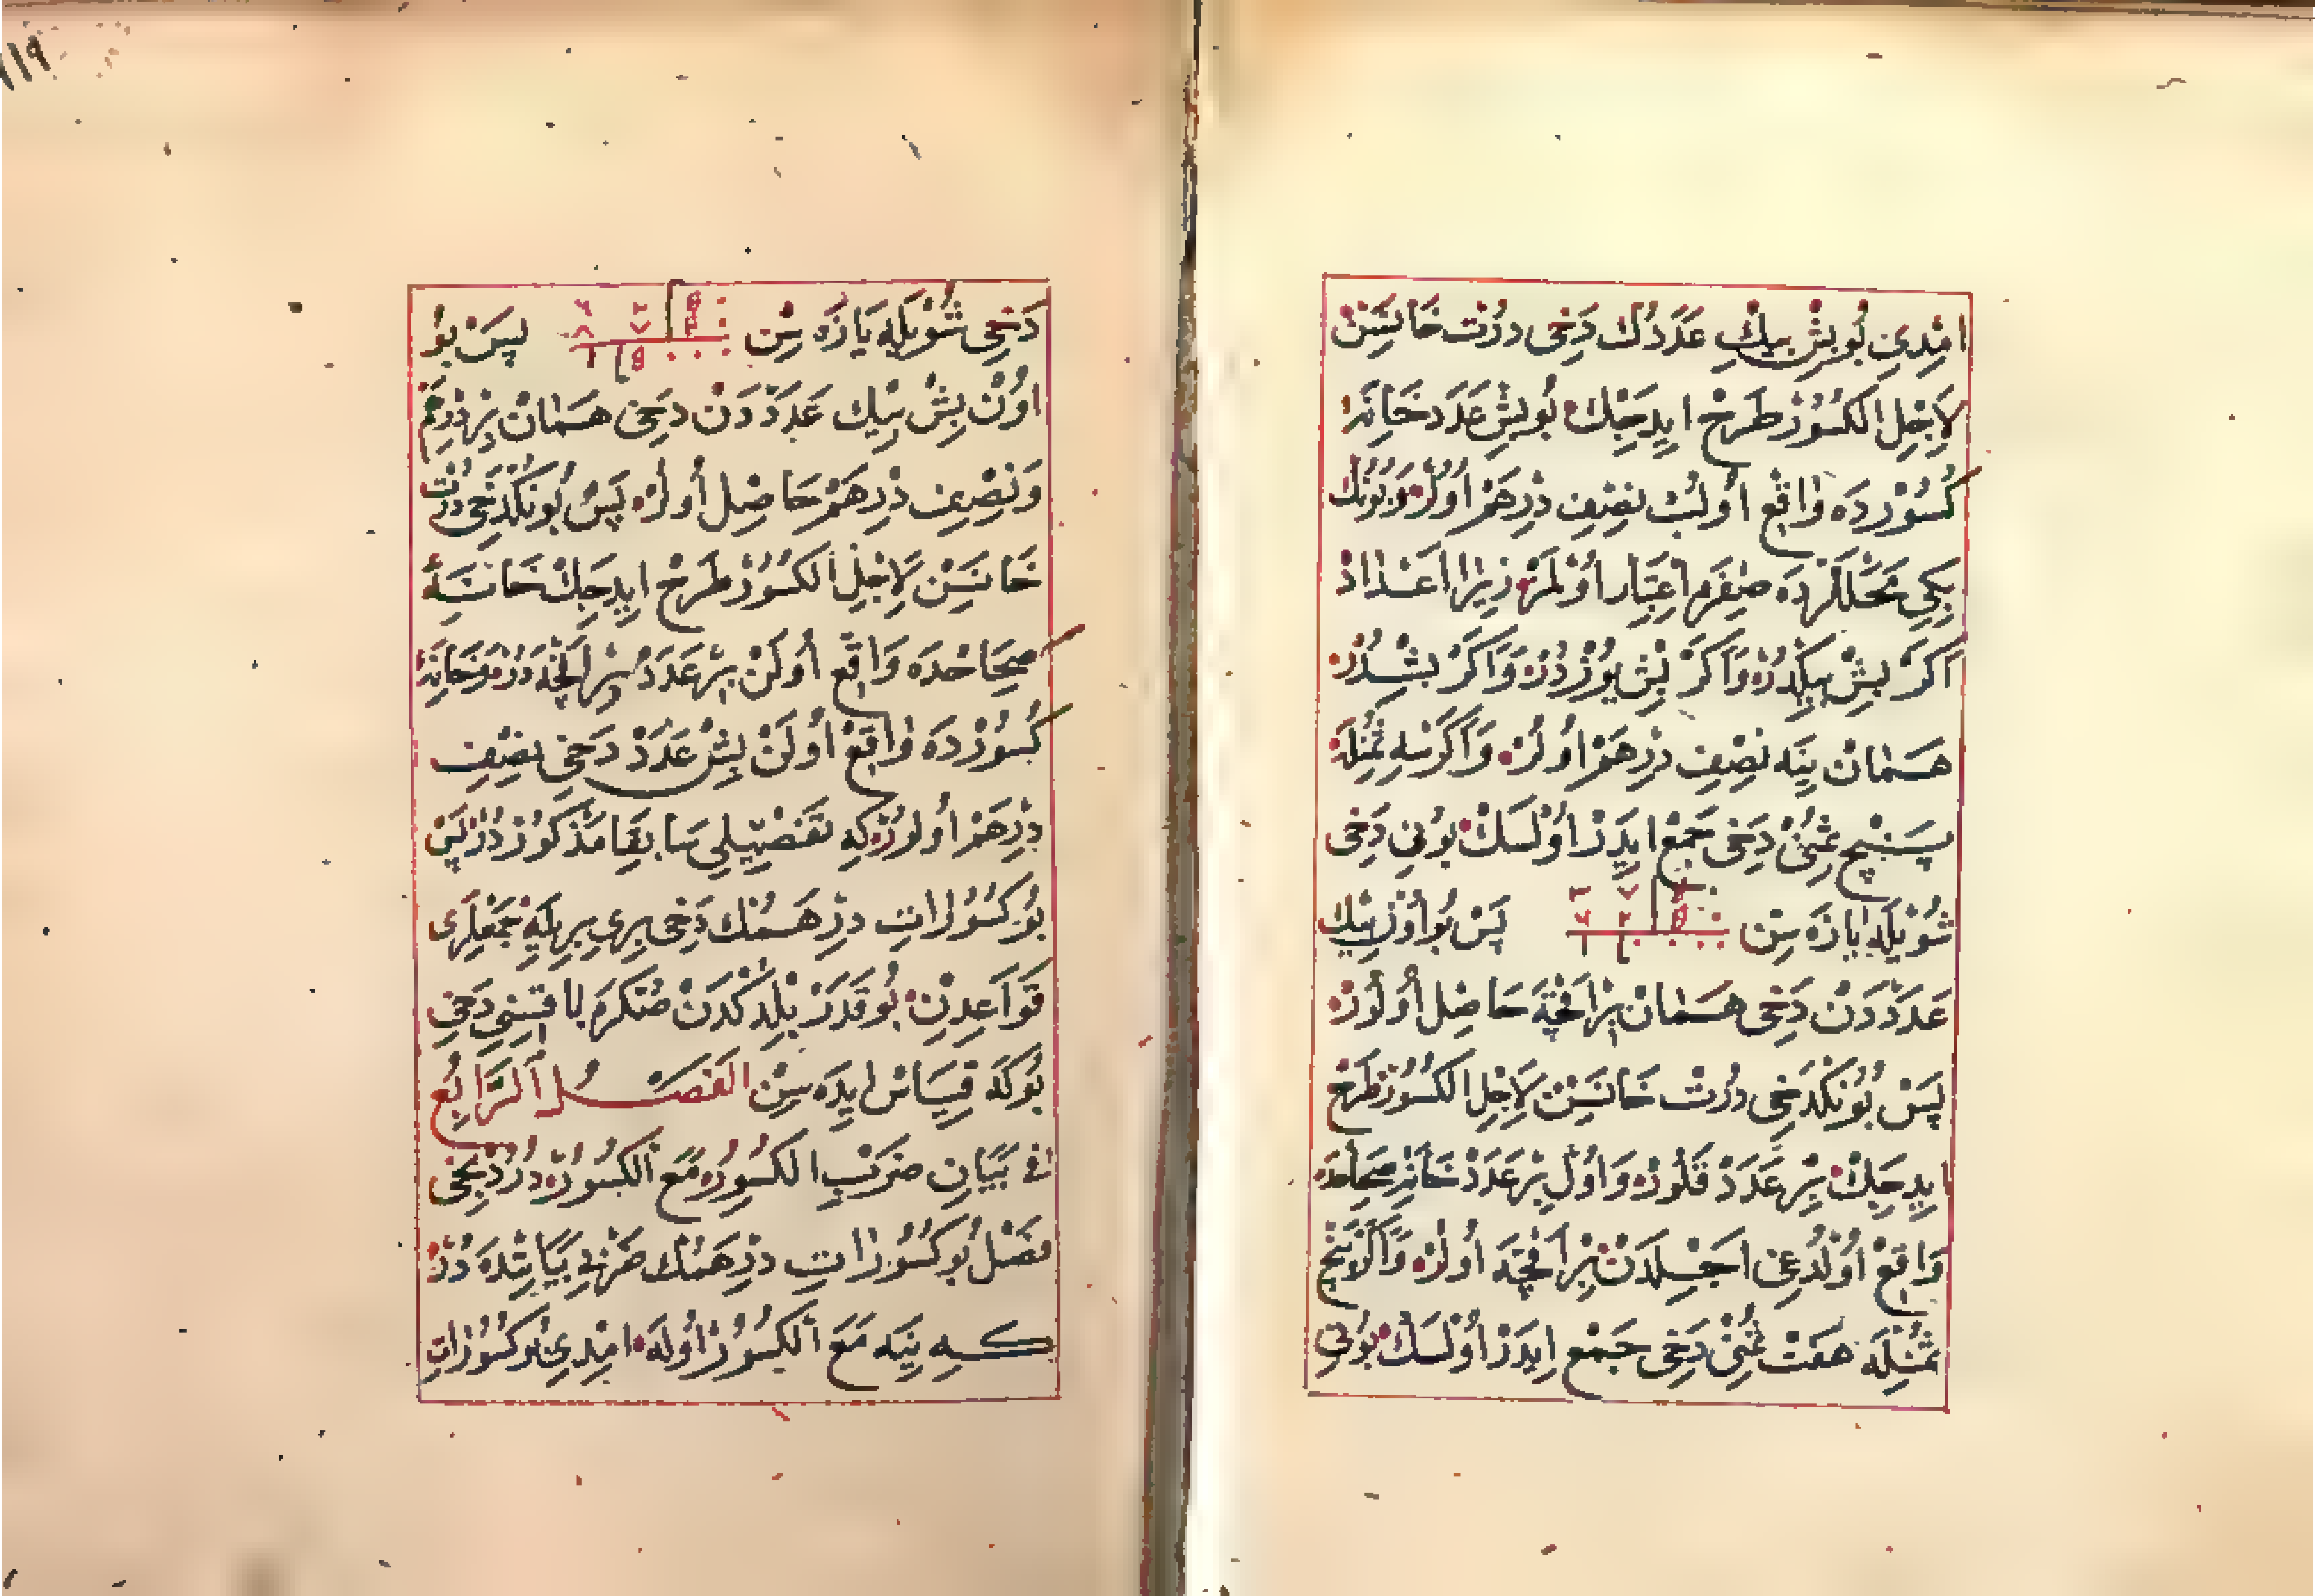 امْدِى بُو بِشْ بِيكْ عَدَدُكْ دَخِى دُرْت خَانَسِنْ
لِاَجْلِ الْكُسُورْ طَرْحْ ايدِجَكْ بُو بِشْ عَدَد خَانَهٔ
كُسُورْدَه وَاقِعْ اُولُبْ نِصْفِ دِرْهَمْ اُولُرْ وَبُونُكْ
بِكِى مَحَلْلَرْدَه صِفِرَه اِعْتِبَار اُولْمَزْ زِيرَا اَعْدَادْ
اَكَرْ بِشْ بِيكْدُرْ وَاَكَرْ بِشْ يُوزْدُرْ وَاَكَرْ بِشْدُرْ
هَمَانْ يِنَه نِصْفِ دِرْهَمْ اُولُرْ وَاَكَرْ سِه ثُمُنْلَه
پَنْج ثُمُنْ دَخِى جَمْعْ ايدَرْ اُولْسَكْ بُونِى دَخِى
شُويْلَه يَازَه سِنْ پَسْ بُو اُونْ بِيكْ
عَدَدْدَنْ دَخِى هَمَانْ بِرْ اَقْچَه حَاصِل اُولُورْ
پَسْ بُونُكْ دَخِى دُرْت خَانَسِنْ لِاَجْلِ الْكُسُورْ طَرْحْ
ايدِجَكْ بِرْ عَدَدْ قَلُورْ وَاُولْ بِرْ عَدَدْ خَانَهٔ صِحَاحْدَه
وَاقِعْ اُولْدُغِى اَجِلْدَنْ بِرْ اَقْچَه اُولُرْ وَاَكَرْ پَنْج
ثُمُنْلَه هَفْت ثُمُنْ دَخِى جَمْع ايدَرْ اُولْسَكْ بُونِى
دَخِى شُويْلَه يَازَه سِنْ پَسْ بُو
اُونْ بِشْ بِيك عَدَدْدَنْ دَخِى هَمَانْ بِرْ دِرْهَمْ
وَنِصْفِ دِرْهَمْ حَاصِل اُولُرْ پَسْ بُونُكْ دَخِى دُرْت
خَانَسِنْ لِاَجْلِ الْكُسُورْ طَرْحْ ايدِجَكْ خَانَهٔ
صِحَاحْدَه وَاقِعْ اُولَنْ بِرْ عَدَدْ بِرْ اَقْچَه دُرْ وَخَانَهٔ
كُسُورْدَه وَاقِعْ اُولَنْ بِشْ عَدَدْ دَخِى نِصْفِ
دِرْهَمْ اُولُورْ كِه تَفْصِيلِى سَابِقَا مَذْكُورْدُرْ پَسْ
بُو كُسُورَاتِ دِرْهَمُكْ دَخِى بِرِى بِرِيلَه جَمْعْلَرِى
قَوَاعِدِنْ بُو قَدَرْ بِلْدِكْدَنْ صُكْرَه بَاقِيسِنِى دَخِى
بُوكَا قِيَاسْ ايدَه سِنْ الْفَصْلُ الرَّابِعُ
فِى بَيَانِ ضَرْبِ الْكُسُورِ مَعَ الْكُسُورِ دُرْدِنْجِى
فَصْل بُو كُسُورَاتِ دِرْهَمُكْ ضَرْبِى بَيَانِنْدَه دُرْ
كِه يِنَه مَعَ الْكُسُورْ اُولَه امْدِى بُو كُسُورَاتِ